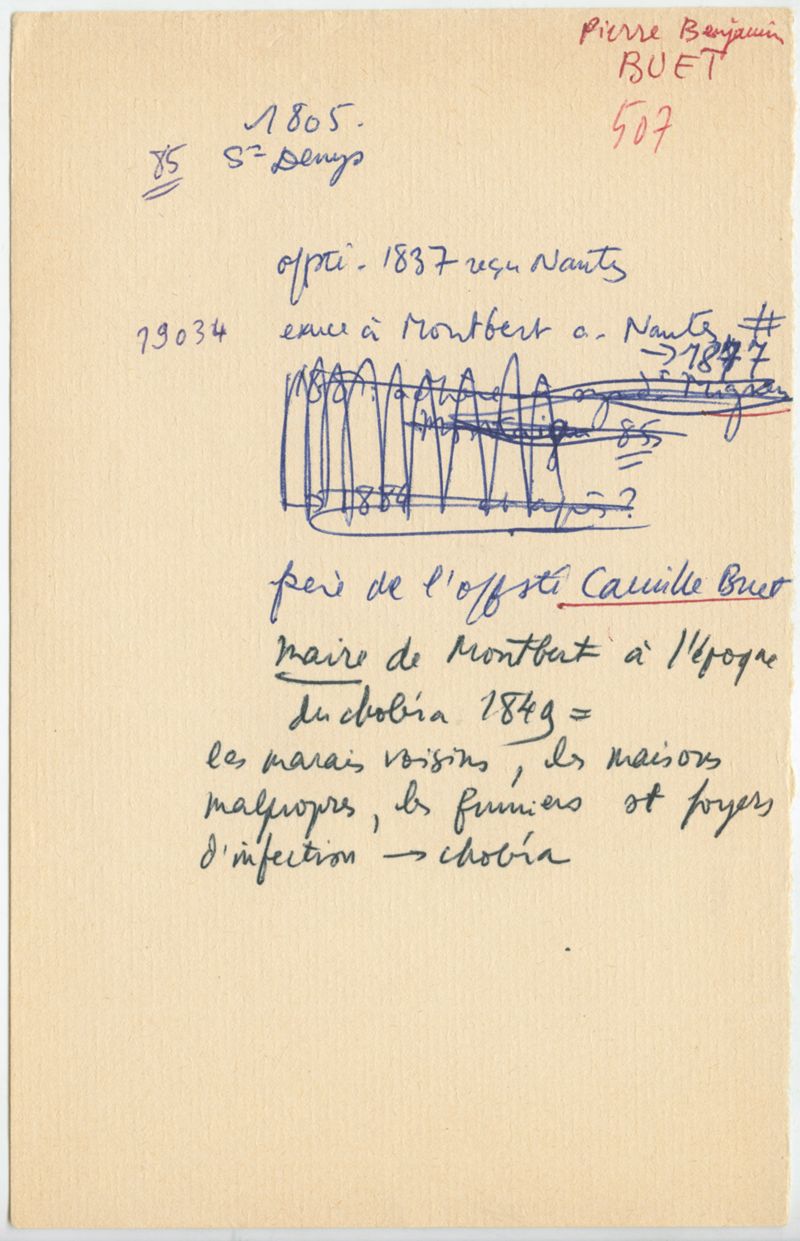 Pierre Benjamin
BUET
507
1805.
85 St Denys
offsté. 1837 reçu Nantes
19034 exerce à Montbert a. Nantes #
→ 1877
1881: adhère
Montaigu 85
1884 et après ?
père de l'offsté Camille Buet
maire de Montbert à l'époque
du choléra 1849 =
les marais voisins, les maisons
malpropres, les fumiers et foyers
d'infection → choléra